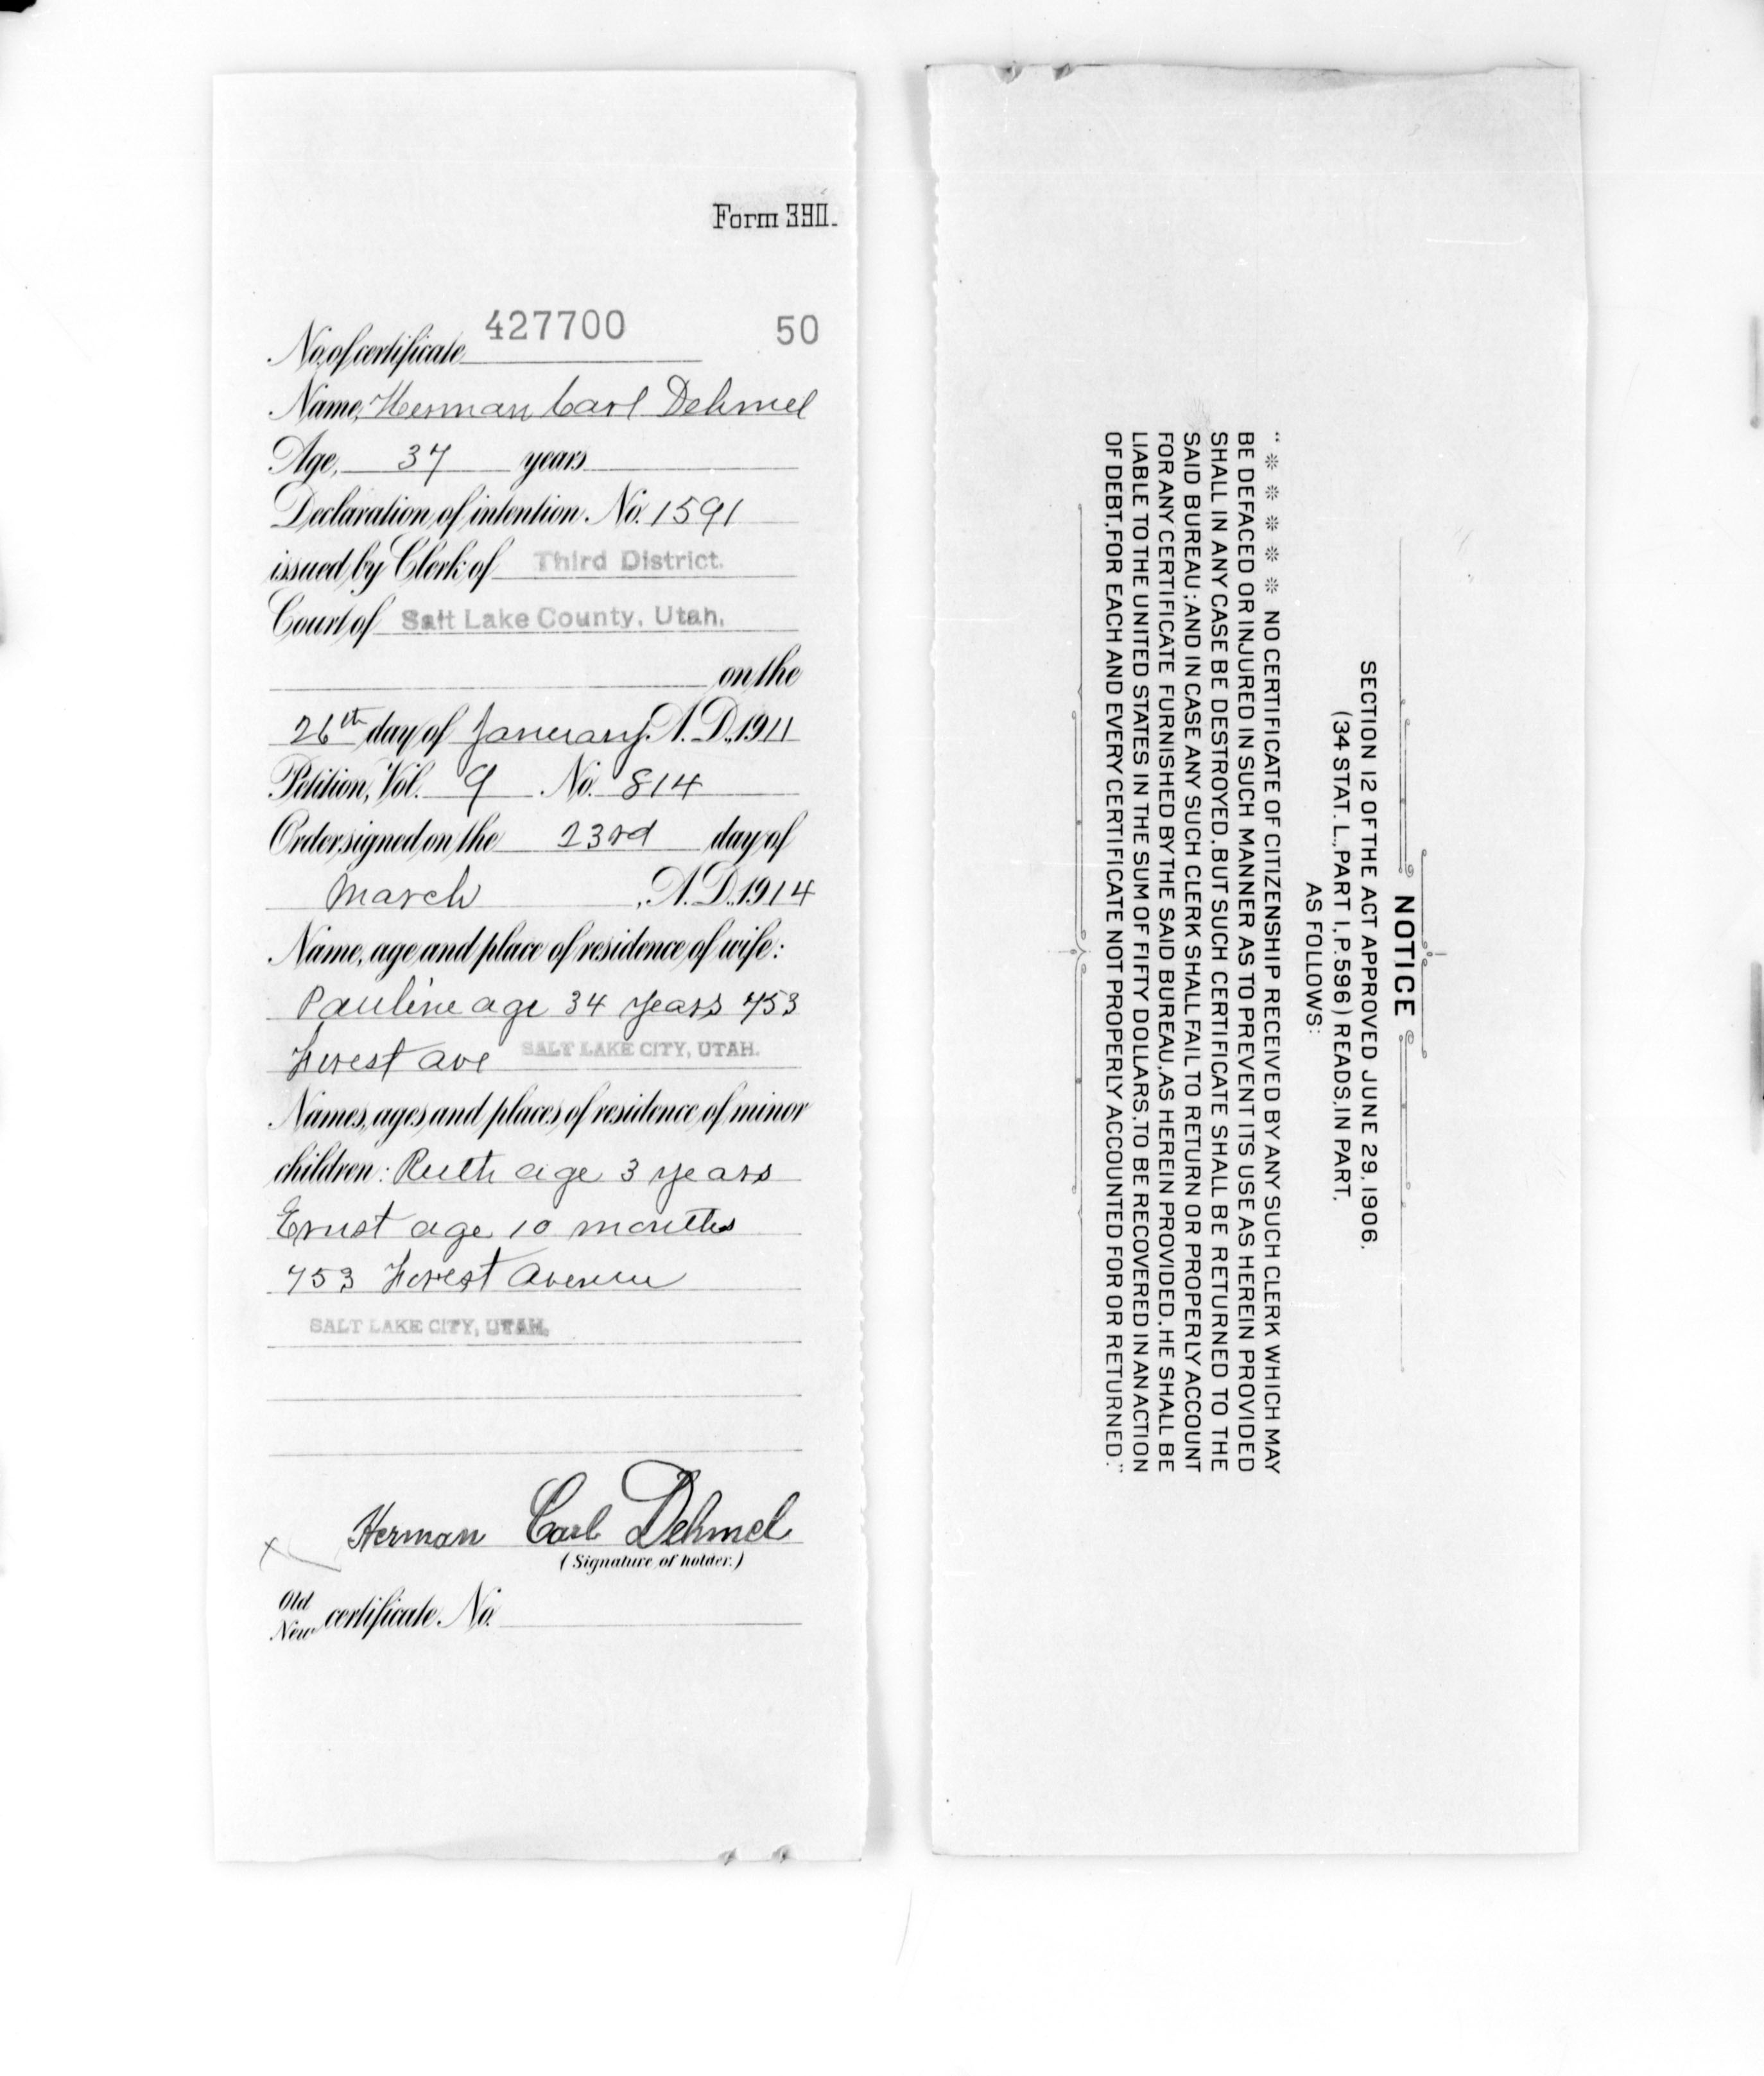 Form 390.
No. of certificate 427700 50
Name, Herman Carl Dehmel
Age, 37 years
Declaration of intention. No. 1591
issued by Clerk of Third District.
Court of Salt Lake County, Utah.
on the
26th day of January A. D., 1911
Petition, Vol. 9 No. 814
Order signed on the 23rd day of
March , A. D., 1914
Name, age and place of residence of wife:
Pauline age 34 years 753
Forest ave SALT LAKE CITY, UTAH.
Names, ages and places of residence of minor
children: Ruth age 3 years
Ernst age 10 months
753 Forest Avenue
SALT LAKE CITY, UTAH.
Herman Carl Dehmel
(Signature of holder.)
Old
New certificate No.
NOTICE
SECTION 12 OF THE ACT APPROVED JUNE 29, 1906,
(34 STAT. L., PART I, P. 596) READS, IN PART,
AS FOLLOWS:
"* * * * * NO CERTIFICATE OF CITIZENSHIP RECEIVED BY ANY SUCH CLERK WHICH MAY
BE DEFACED OR INJURED IN SUCH MANNER AS TO PREVENT ITS USE AS HEREIN PROVIDED
SHALL IN ANY CASE BE DESTROYED, BUT SUCH CERTIFICATE SHALL BE RETURNED TO THE
SAID BUREAU; AND IN CASE ANY SUCH CLERK SHALL FAIL TO RETURN OR PROPERLY ACCOUNT
FOR ANY CERTIFICATE FURNISHED BY THE SAID BUREAU, AS HEREIN PROVIDED, HE SHALL BE
LIABLE TO THE UNITED STATES IN THE SUM OF FIFTY DOLLARS, TO BE RECOVERED IN AN ACTION
OF DEBT, FOR EACH AND EVERY CERTIFICATE NOT PROPERLY ACCOUNTED FOR OR RETURNED."